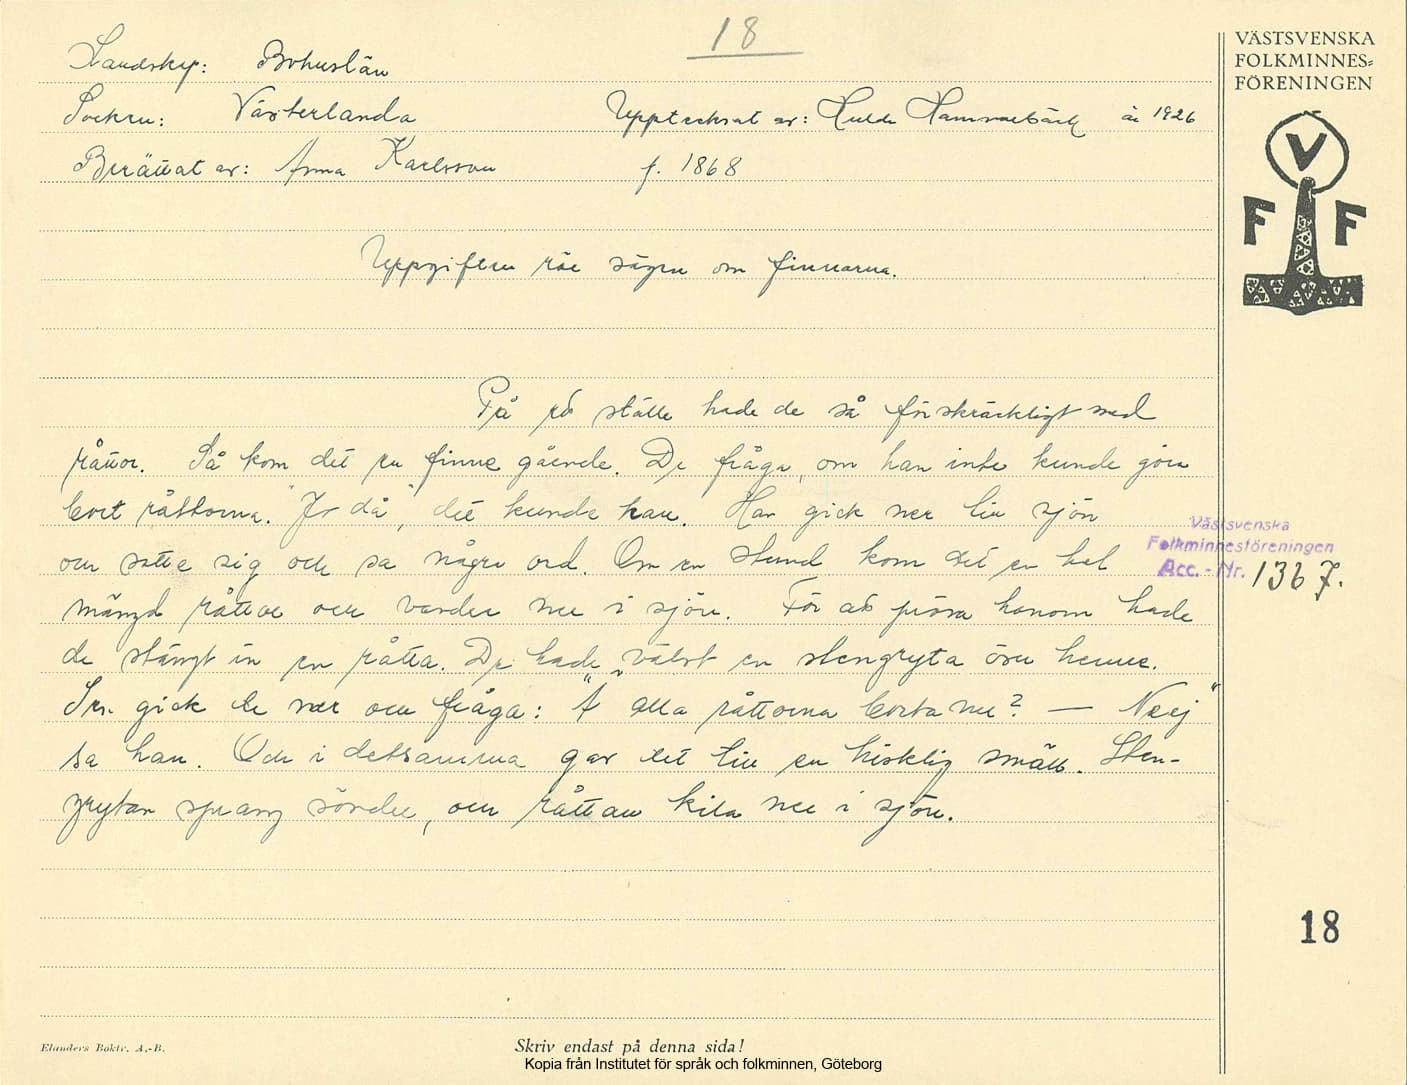 18
Landskap: Bohuslän
Socken: Västerlanda Upptecknat av: Hulda Hammarbäck år 1926
Berättat av: Anna Karlsson f. 1868
VÄSTSVENSKA
FOLKMINNES-
FÖRENINGEN
V
F F
Uppgiften rör sägen om finnarna.
På ett ställe hade de så förskräckligt med
råttor. Så kom det en finne gående. De fråga, om han inte kunde göra
bort råttorna. "Ja då", det kunde han. Han gick ner till sjön
och satte sig och sa några ord. Om en stund kom det en hel
mängd råttor och vandra ner i sjön. För att pröva honom hade
de stängt in en råtta. De hade välvt en stengryta över henne.
Sen gick de ner och fråga: "Ä alla råttorna borta nu? — Neej"
sa han. Och i detsamma gav det till en hisklig smäll. Sten-
grytan sprang sönder, och råttan kila ner i sjön.
Västsvenska
Folkminnesföreningen
Acc. - Nr. 1367.
18
Elanders Boktr. A.-B.
Skriv endast på denna sida!
Kopia från Institutet för språk och folkminnen, Göteborg